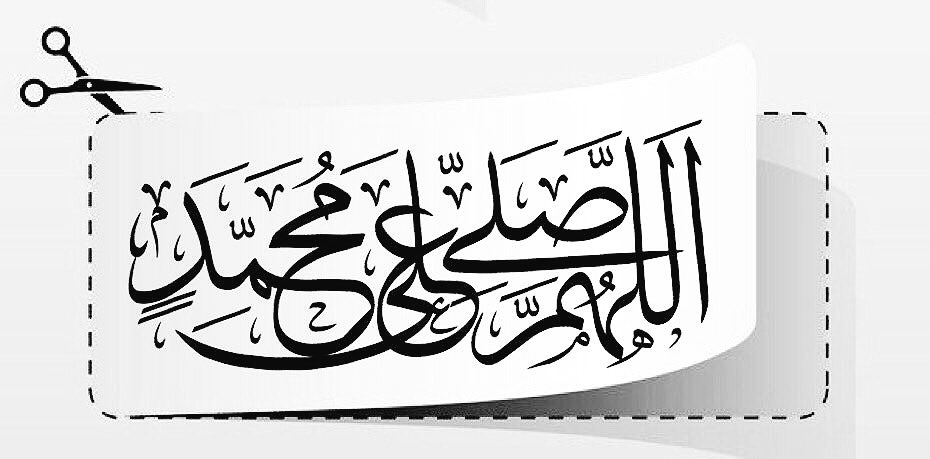 اللهم صل على محمد